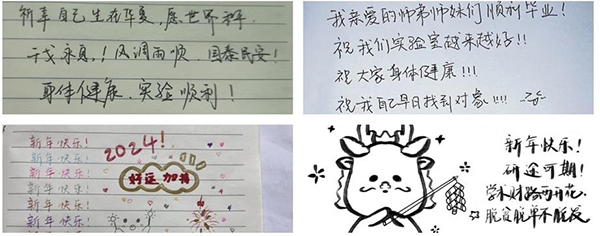 新幸自己生在华夏,愿世界和平
干戈永息!风调雨顺 国泰民安!
身体健康、实验顺利!
我亲爱的师弟师妹们顺利毕业!
祝我们实验室越来越好!!
祝大家身体健康!!!
祝我自己早日找到对象!!!!
新年快乐!
新年快乐!
新年快乐!
新年快乐!
新年快乐!
新年快乐!
2024!
好运 加持
新年快乐!
研途可期!
学术财路两开花,
脱贫脱单不脱发